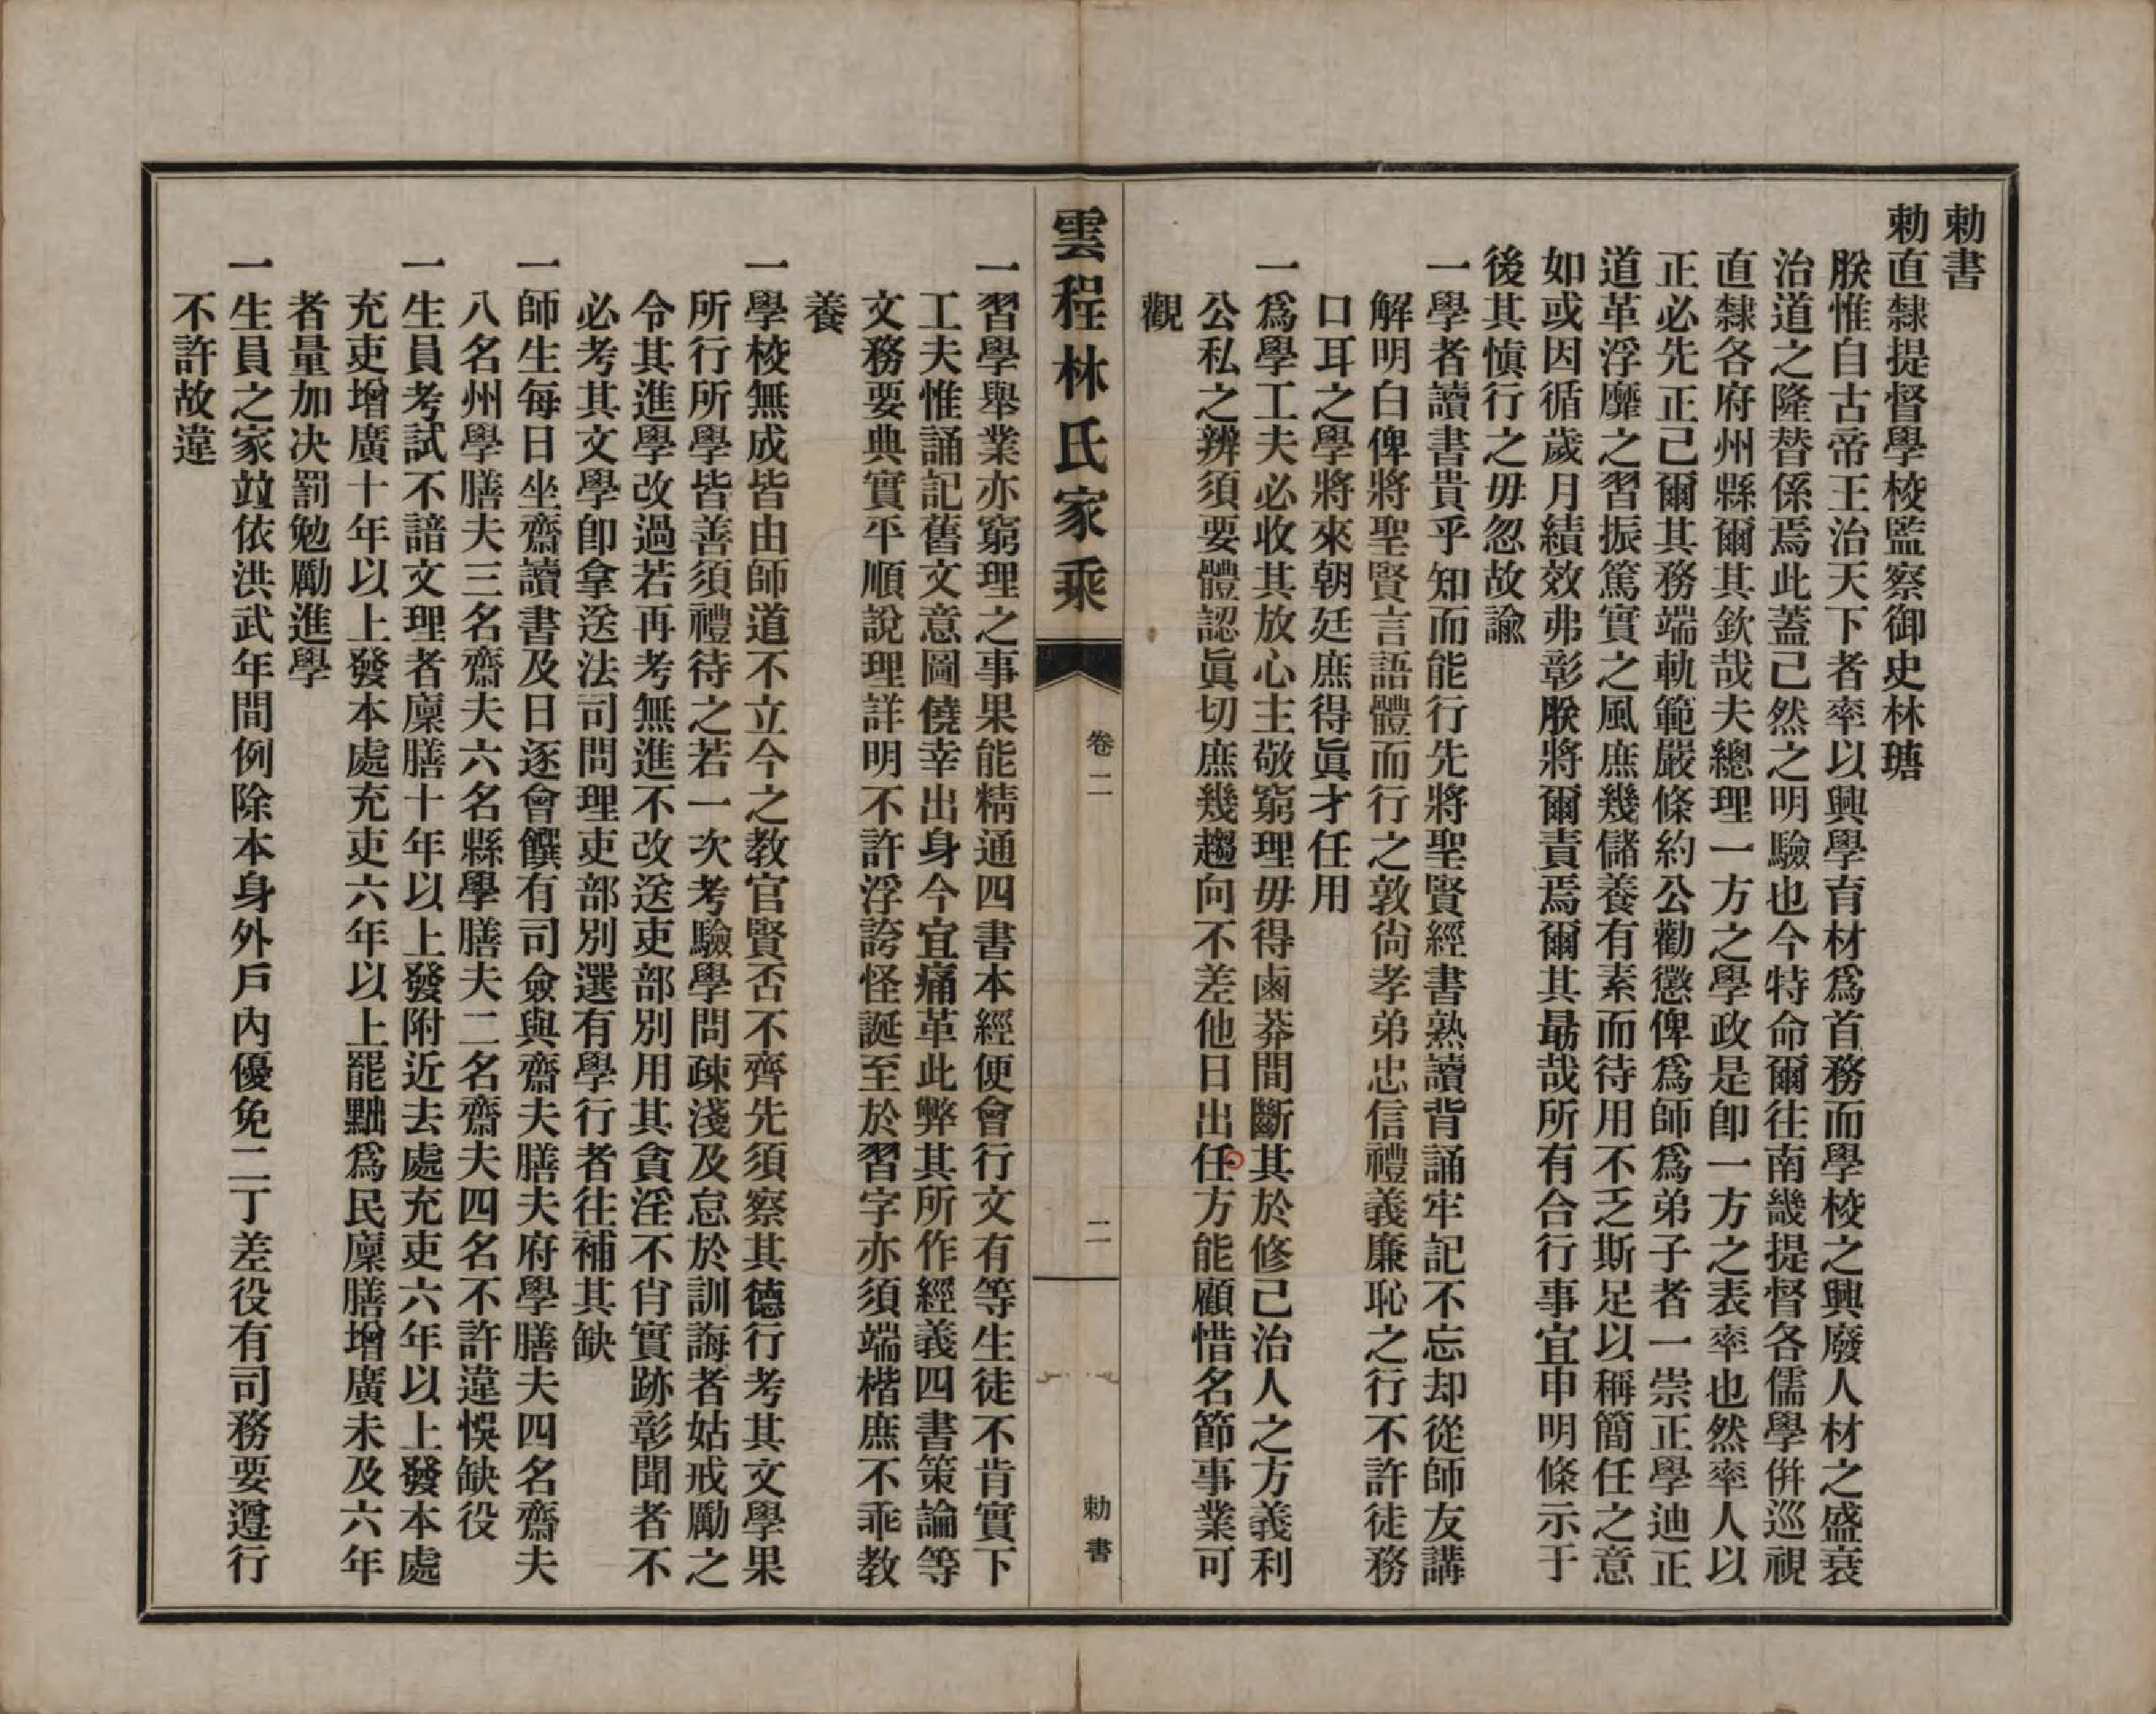 勅書
勅直隸提督學校監察御史林瑭
朕惟自古帝王治天下者率以興學育材爲首務而學校之興廢人材之盛衰
治道之隆替係焉此蓋己然之明驗也今特命爾往南畿提督各儒學倂巡視
直隸各府州縣爾其欽哉夫總理一方之學政是卽一方之表率也然率人以
正必先正己爾其務端軌範嚴條約公勸懲俾爲師爲弟子者一崇正學迪正
道革浮靡之習振篤實之風庶幾儲養有素而待用不乏斯足以稱簡任之意
如或因循歲月績效弗彰朕將爾責焉爾其勗哉所有合行事宜申明條示于
後其愼行之毋忽故諭
一學者讀書貴乎知而能行先將聖賢經書熟讀背誦牢記不忘却從師友講
解明白俾將聖賢言語體而行之敦尙孝弟忠信禮義廉恥之行不許徒務
口耳之學將來朝廷庶得眞才任用
一爲學工夫必收其放心主敬窮理毋得鹵莽間斷其於修己治人之方義利
公私之辨須要體認眞切庶幾趨向不差他日出任方能顧惜名節事業可
觀
雲程林氏家乘
卷二
二
勅書
一習學舉業亦窮理之事果能精通四書本經便會行文有等生徒不肯實下
工夫惟誦記舊文意圖僥幸出身今宜痛革此弊其所作經義四書策論等
文務要典實平順說理詳明不許浮誇怪誕至於習字亦須端楷庶不乖敎
養
一學校無成皆由師道不立今之教官賢否不齊先須察其德行考其文學果
所行所學皆善須禮待之若一次考驗學問疎淺及怠於訓誨者姑戒勵之
令其進學改過若再考無進不改送吏部別用其貪淫不肖實跡彰聞者不
必考其文學卽拿送法司問理吏部別選有學行者往補其缺
一師生每日坐齋讀書及日逐會饌有司僉與齋夫膳夫府學膳夫四名齋夫
八名州學膳夫三名齋夫六名縣學膳夫二名齋夫四名不許違悞缺役
一生員考試不諳文理者廩膳十年以上發附近去處充吏六年以上發本處
充吏增廣十年以上發本處充吏六年以上罷黜爲民廩膳增廣未及六年
者量加决罰勉勵進學
一生員之家竝依洪武年間例除本身外戶內優免二丁差役有司務要遵行
不許故違